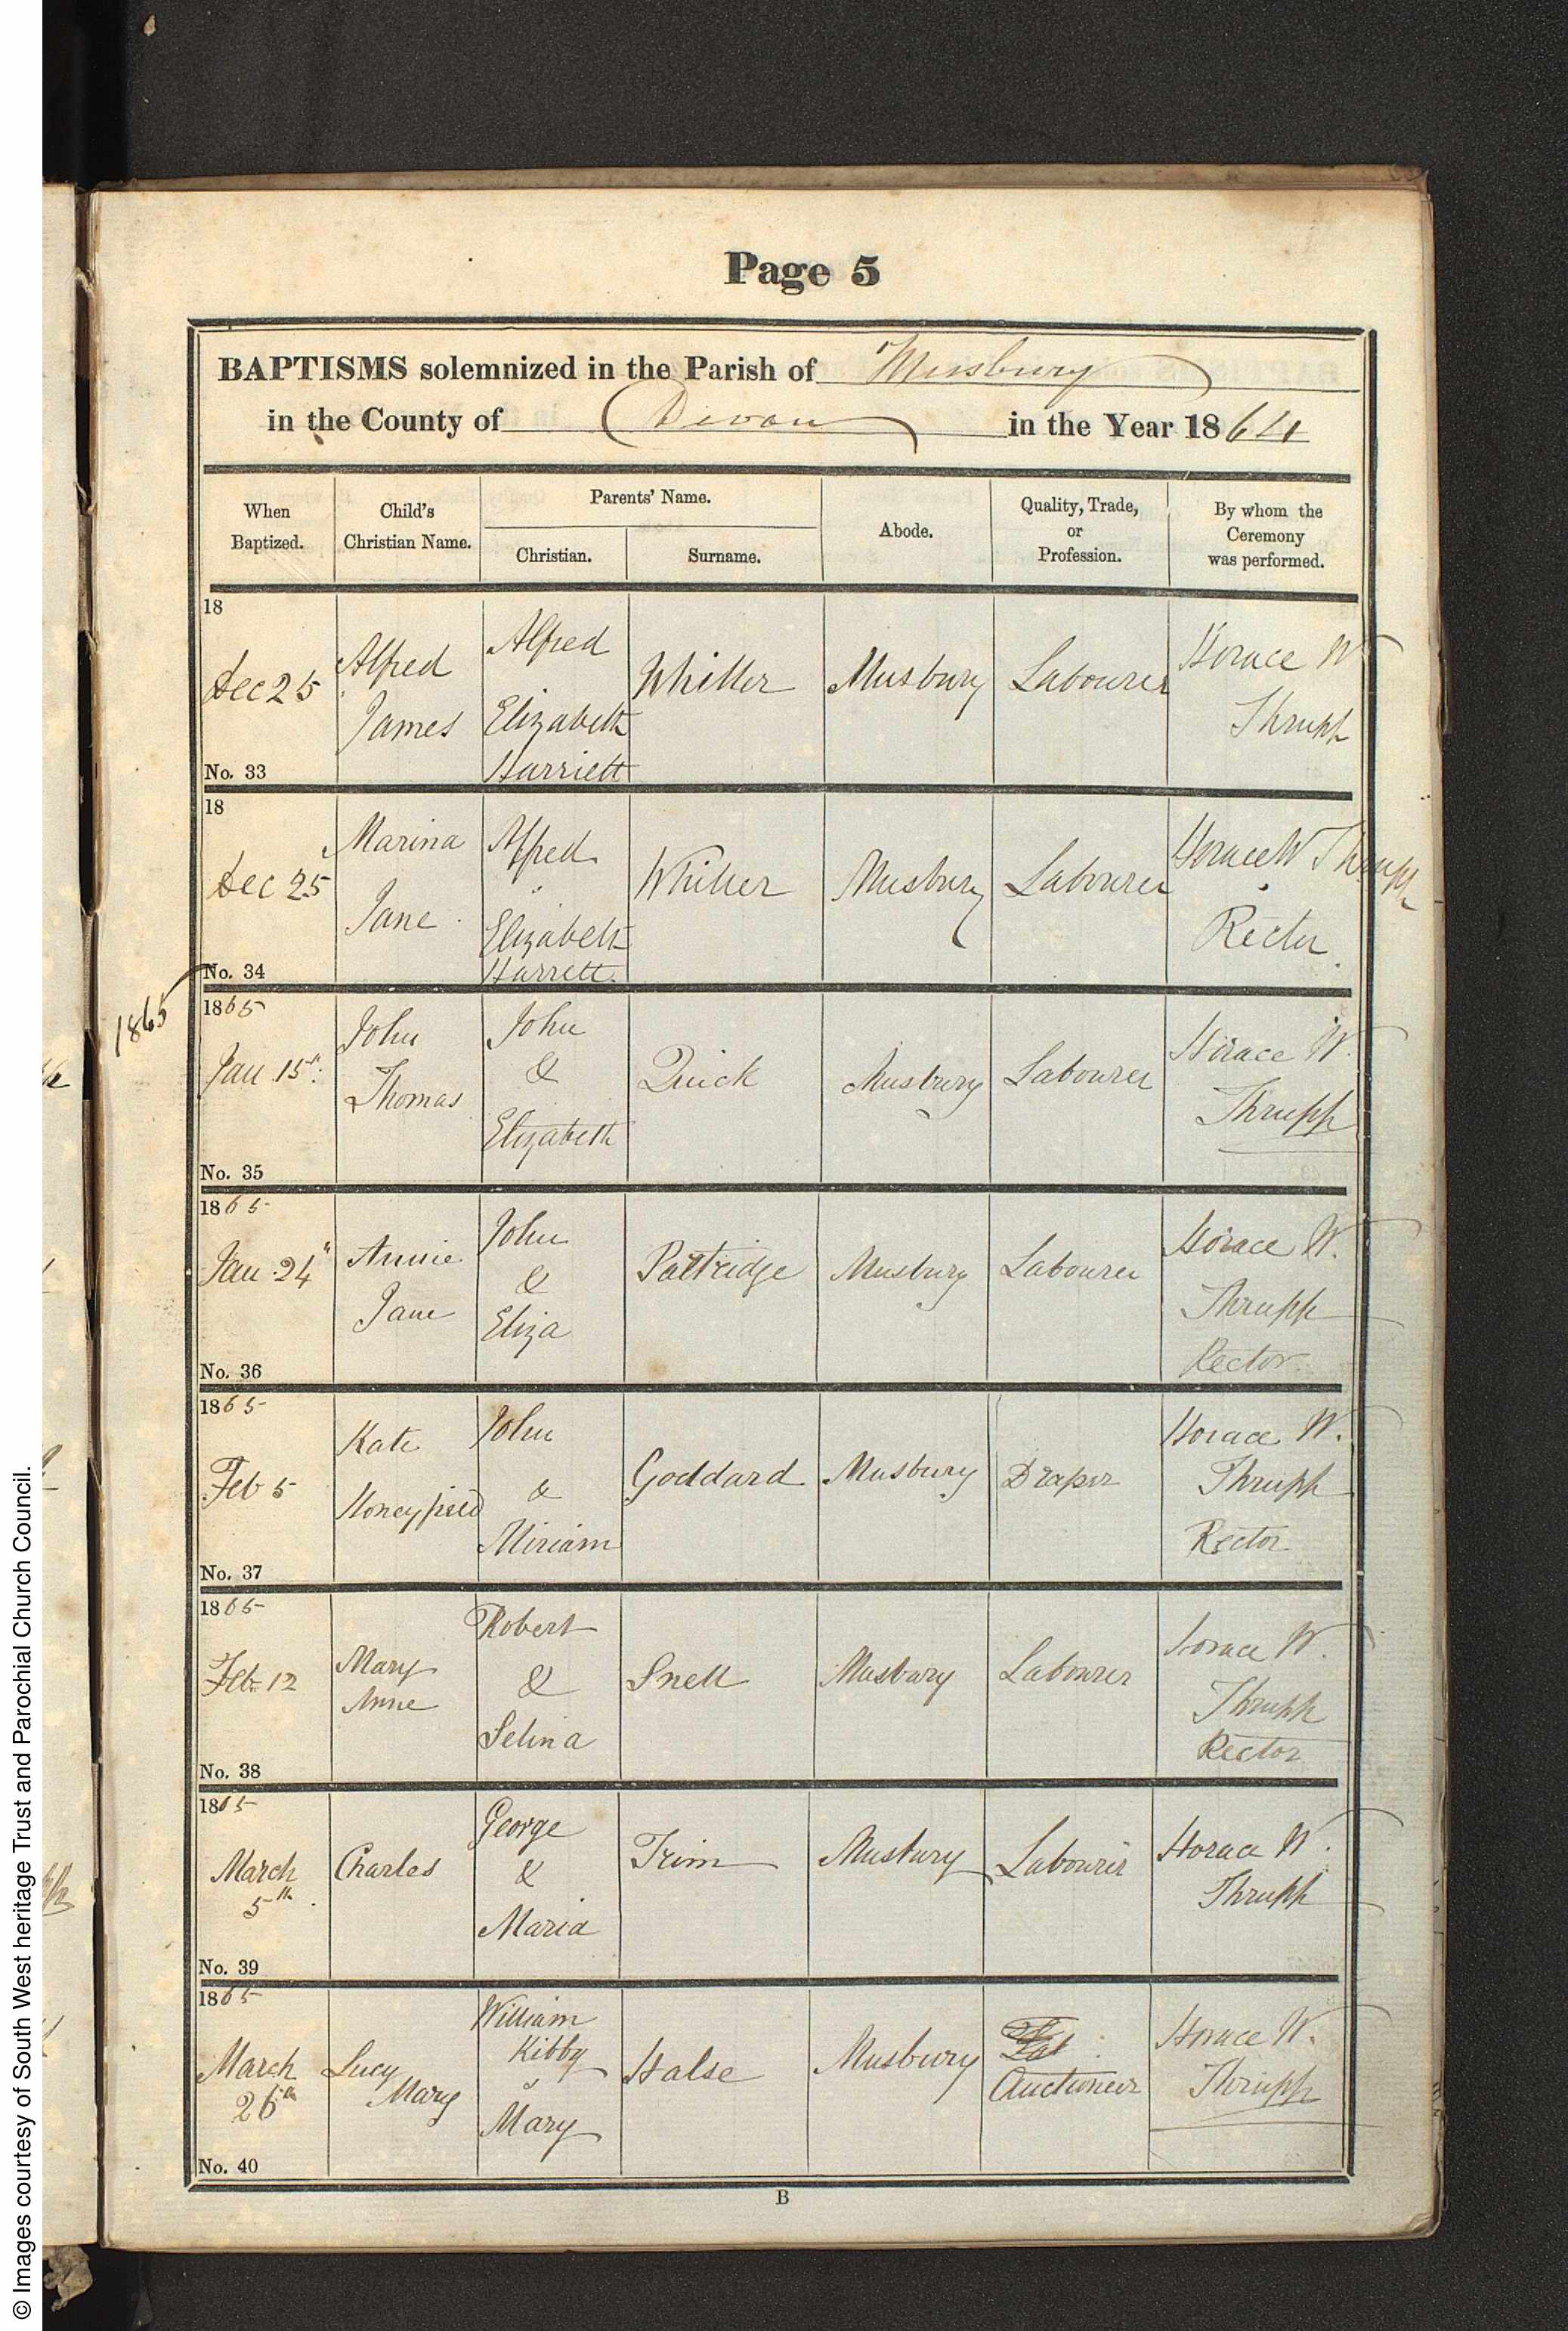 Page 5
BAPTISMS solemnized in the Parish of Musbury
in the County of Devon in the Year 1864
When Baptized. Child's Christian Name. Parents' Name. Christian. Surname. Abode. Quality, Trade, or Profession. By whom the Ceremony was performed.
18
Dec 25 Alfred James Alfred Elizabeth Harriett Whitter Musbury Labourer Horace W Thrupp
No. 33
18
Dec 25 Marina Jane Alfred Elizabeth Harrett Whitter Musbury Labourer Horace W Thrupp Rector
No. 34
1865
1865
Jan 15th John Thomas John & Elizabeth Quick Musbury Labourer Horace W. Thrupp
No. 35
1865
Jan 24 Annie Jane John & Eliza Partridge Musbury Labourer Horace W. Thrupp Rector
No. 36
1865
Feb 5 Kate Honeyfield John & Miriam Goddard Musbury Draper Horace W. Thrupp Rector
No. 37
1865
Feb 12 Mary Anne Robert & Selina Snell Musbury Labourer Horace W. Thrupp Rector
No. 38
1865
March 5th Charles George & Maria Trim Musbury Labourer Horace W. Thrupp
No. 39
1865
March 26th Lucy Mary William Kibby & Mary Halse Musbury Auctioneer Horace W. Thrupp
No. 40
B
© Images courtesy of South West heritage Trust and Parochial Church Council.